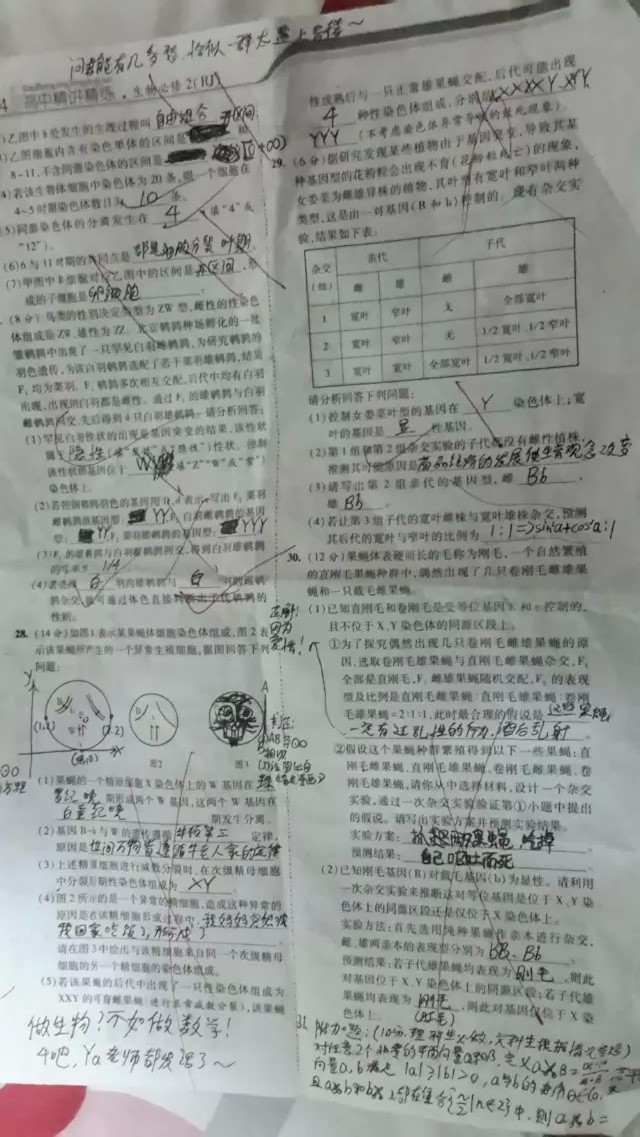 问君能有几多愁,恰似一群太监上青楼~
高中精讲精练·生物必修2(RJ)
)乙图中B处发生的生理过程叫 自由组合
)乙图细胞内含有染色单体的区间是
8~11,不含同源染色体的区间是
4)若该生物体细胞中染色体为20条,则一个细胞在
4~5时期染色体数目为 10 条。
(5)同源染色体的分离发生在 4 (填“4”或
“12”)。
(6)6与11时期的共同点是 都是细胞分裂时期
(7)甲图中B细胞对应乙图中的区间是 ,形
成的子细胞是 卵细胞
(8分)鸟类的性别决定类型为ZW型,雌性的性染色
体组成是ZW,雄性为ZZ。北京鹌鹑种场孵化的一批
雏鹌鹑中出现了一只罕见白羽雌鹌鹑,为研究鹌鹑的
羽色遗传,为该白羽鹌鹑选配了若干栗羽雄鹌鹑,结果
F₁均为栗羽。F₁鹌鹑多次相互交配,后代中均有白羽
出现,出现的白羽都是雌性。通过F₁的雄鹌鹑与白羽
雌鹌鹑回交,先后得到4只白羽雄鹌鹑。请分析回答:
(1)罕见白羽性状的出现是基因突变的结果,该性状
属于 隐性 (填“显性”或“隐性”)性状。控制
该性状的基因位于 W (填“Z”“W”或“常”)
染色体上。
(2)若控制鹌鹑羽色的基因用D、d表示,写出F₁栗羽
雌鹌鹑的基因型: YY,F₁白羽雌鹌鹑的基因
型: YY,F₁栗羽雄鹌鹑的基因型: YYY
(3)F₁的雄鹌鹑与白羽雌鹌鹑回交,得到白羽雄鹌鹑
的几率为 1/4
(4)若选择 白 羽的雄鹌鹑与 白 羽的雌鹌
鹑杂交,就可通过体色直接判断出子代鹌鹑的
性别。
28. (14分)如图1表示某果蝇体细胞染色体组成,图2表
示该果蝇所产生的一个异常生殖细胞,依据图回答下列
问题:
图2
图3
(1)果蝇的一个精原细胞X染色体上的W基因在
期形成两个W基因,这两个W基因在
期发生分离。
(2)基因B-b与W的遗传遵循 牛顿第三 定律,
原因是 世间万物皆遵循牛老人家的定律
(3)上述精原细胞进行减数分裂时,在次级精母细胞
中分裂后期性染色体组成为 XY
(4)图2所示的是一个异常的精细胞,造成这种异常的
原因是在该精细胞形成过程中,我妈妈突然喊
我回家吃饭了
请在图3中绘出与该精细胞来自同一个次级精母
细胞的另一个精细胞的染色体组成。
(5)若该果蝇的后代中出现了一只性染色体组成为
XXY的可育雌果蝇(进行正常减数分裂),该果蝇
做生物?不如做数学!
4吧,Ya老师都发话了~
性成熟后与一只正常雄果蝇交配,后代可能出现
4 种性染色体组成,分别是 XX XXX Y XYY
YYY (不考虑染色体异常导致的致死现象)。
29. (6分)据研究发现某些植物由于基因突变,导致其某
种基因型的花粉粒会出现不育(花粉粒死亡)的现象,
女娄菜为雌雄异株的植物,其叶型有宽叶和窄叶两种
类型,这是由一对基因(B和b)控制的。现有杂交实
验,结果如下表:
杂交(组) 亲代 子代
雌 雄 雌 雄
1 宽叶 窄叶 无 全部宽叶
2 宽叶 窄叶 无 1/2宽叶、1/2窄叶
3 宽叶 宽叶 全部宽叶 1/2宽叶、1/2窄叶
请分析回答下列问题:
(1)控制女娄菜叶型的基因在 Y 染色体上;宽
叶的基因是 显 性基因。
(2)第1组和第2组杂交实验的子代都没有雌性植株,
推测其可能原因是 商品经济的发展使生育观念改变
(3)请写出第2组亲代的基因型,雌 Bb ,
雄 Bb 。
(4)若让第3组子代的宽叶雌株与宽叶雄株杂交,预测
其后代的宽叶与窄叶的比例为 1:1⇒sin²α+cos²α:1
30. (12分)果蝇体表硬而长的毛称为刚毛,一个自然繁殖
的直刚毛果蝇种群中,偶然出现了几只卷刚毛雌雄果
蝇和一只截毛果蝇。
(1)已知直刚毛和卷刚毛是受等位基因E和e控制的,
且不位于X、Y染色体的同源区段上。
①为了探究偶然出现几只卷刚毛雌雄果蝇的原
因,选取卷刚毛雄果蝇与直刚毛雌果蝇杂交,F₁
全部是直刚毛,F₁雌雄果蝇随机交配,F₂的表现
型及比例是直刚毛雌果蝇:直刚毛雄果蝇:卷刚
毛雄果蝇=2:1:1,此时最合理的假说是 这些果蝇
一定有过乱性的行为,酒后乱射
②假设这个果蝇种群繁殖得到以下一些果蝇:直
刚毛雌果蝇、直刚毛雄果蝇、卷刚毛雌果蝇、卷
刚毛雄果蝇,请你从中选择材料,设计一个杂交
实验,通过一次杂交实验验证第①小题中提出
的假说。请写出实验方案并预测实验结果。
实验方案: 抓起两只果蝇 吃掉
预测结果: 自己呕吐而死
(2)已知刚毛基因(B)对截毛基因(b)为显性。请利用
一次杂交实验来推断这对等位基因是位于X、Y染
色体上的同源区段还是仅位于X染色体上。
实验方法:首先选用纯种果蝇作亲本进行杂交,
雌、雄两亲本的表现型分别为 BB、Bb 。
预测结果:若子代雄果蝇均表现为 刚毛 ,则此
对基因位于X、Y染色体上的同源区段;若子代雄
果蝇均表现为 刚毛 ,则此对基因仅位于X染
色体上。
31. 附加题:(10分,理科生必做,文科生
对任意2个非零的平面向量α和β,定义
向量a,b满足|a|≥|b|>0,a与b的夹角θ∈(0,
且a※b和b※a都在集合{n/2|n∈Z}中,则a※b=